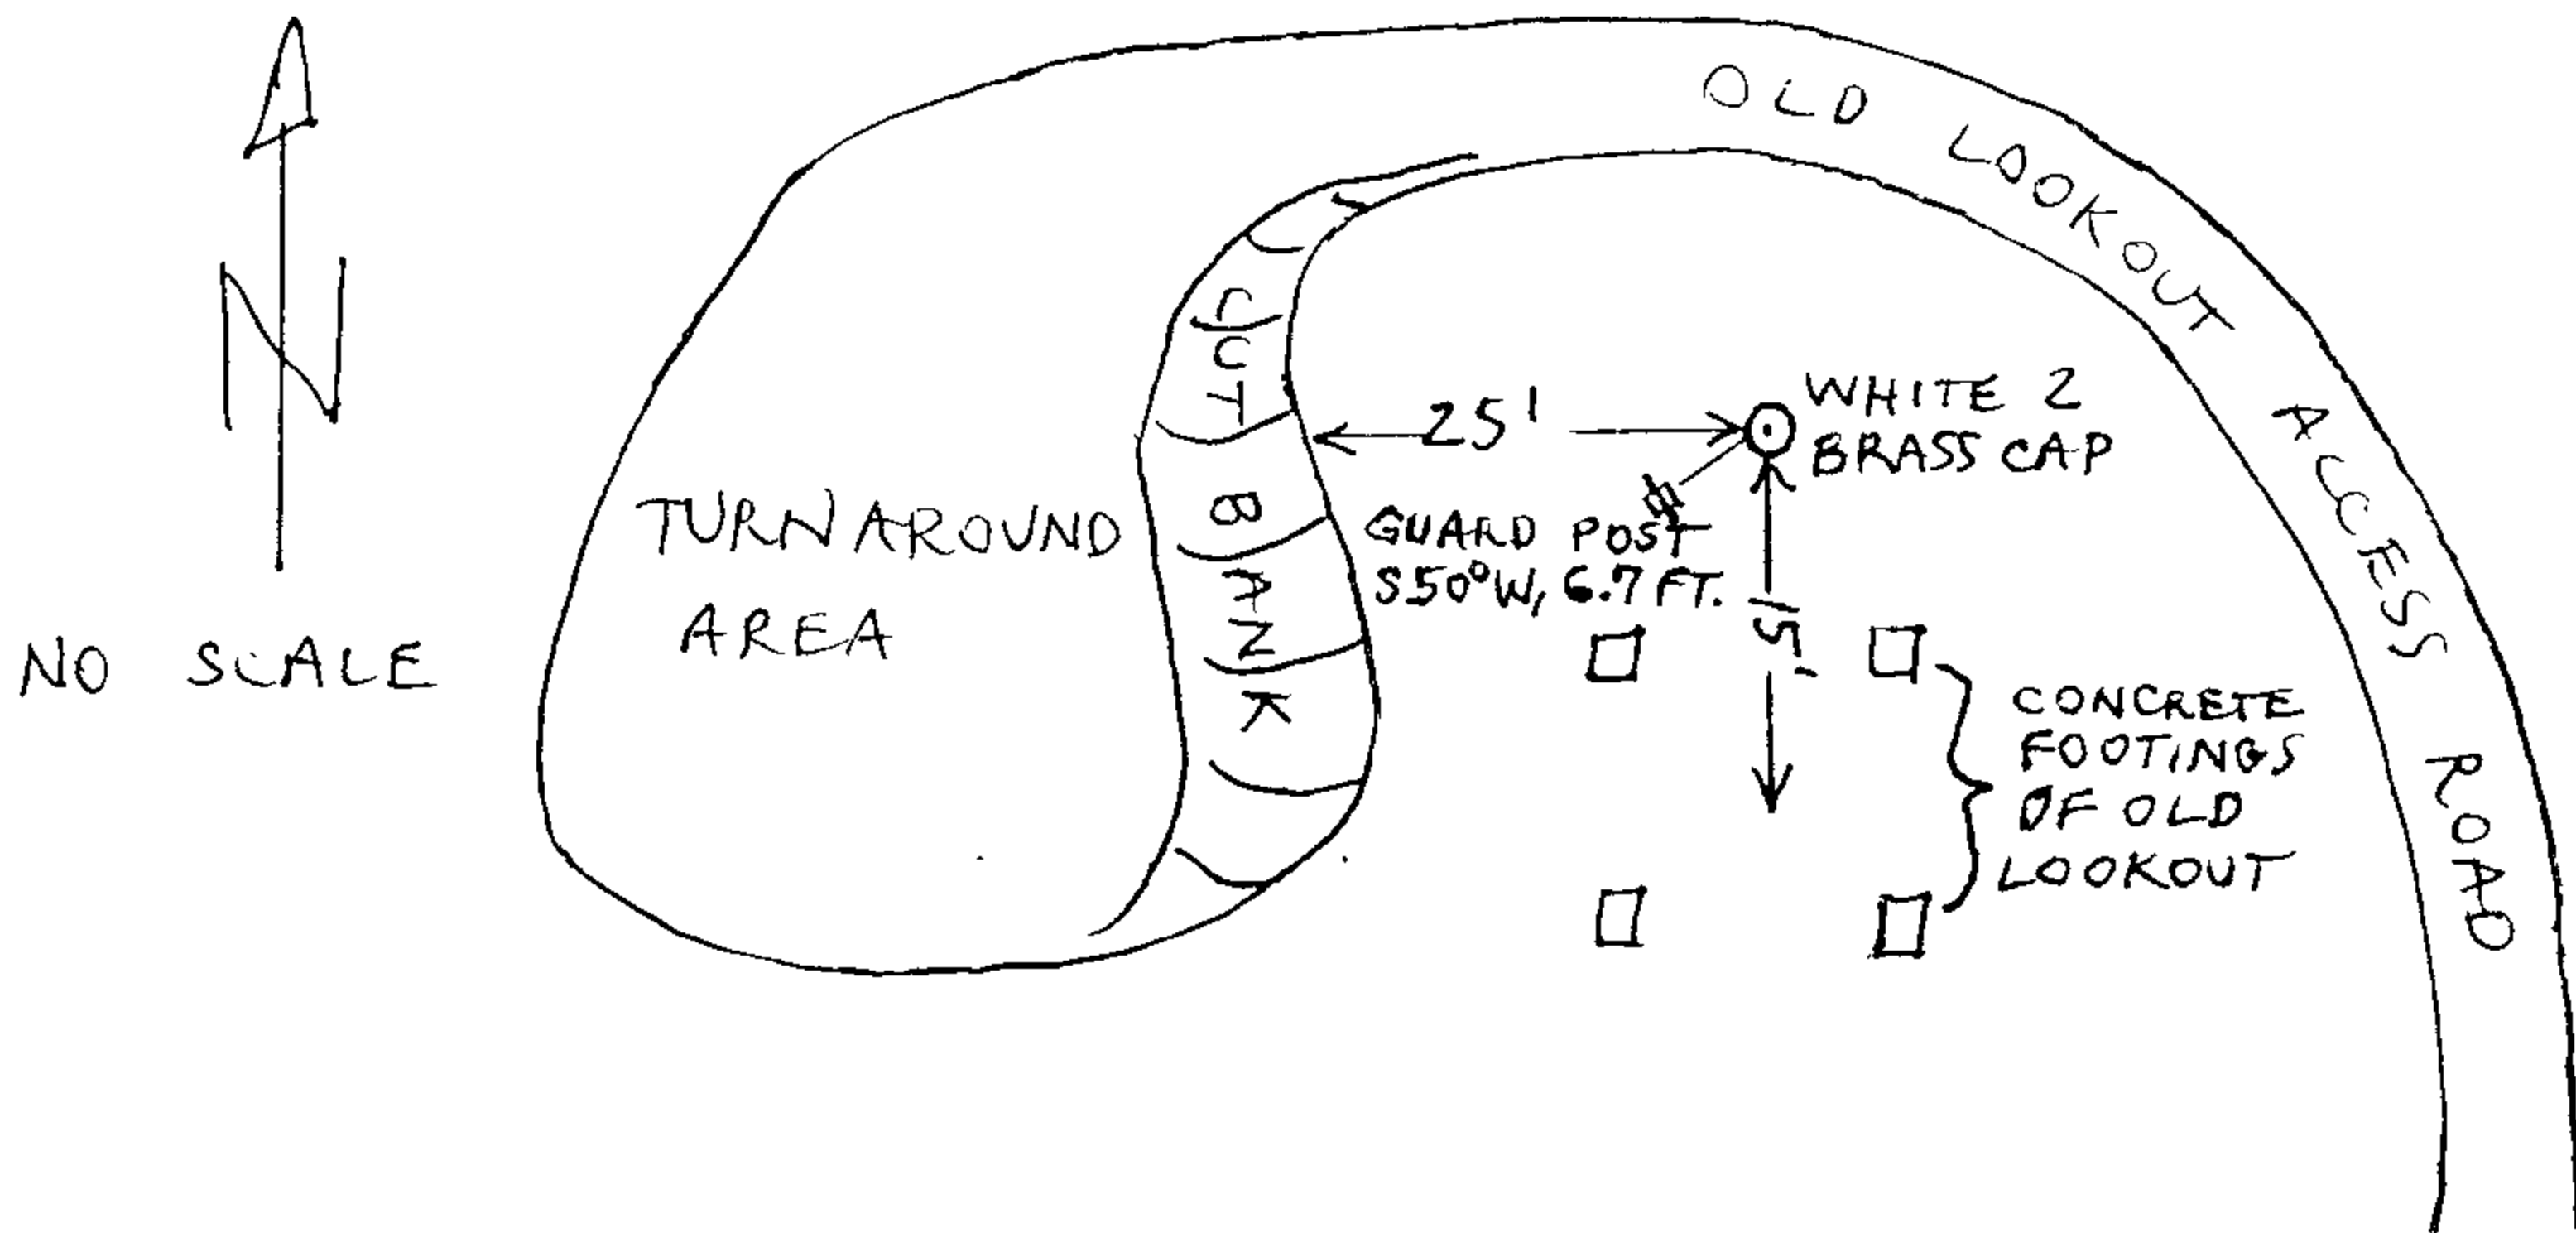 N
NO SCALE
OLD LOOKOUT ACCESS ROAD
TURNAROUND
AREA
CUT BANK
25'
WHITE 2
BRASS CAP
GUARD POST
S50°W, 6.7 FT.
15'
CONCRETE
FOOTINGS
OF OLD
LOOKOUT